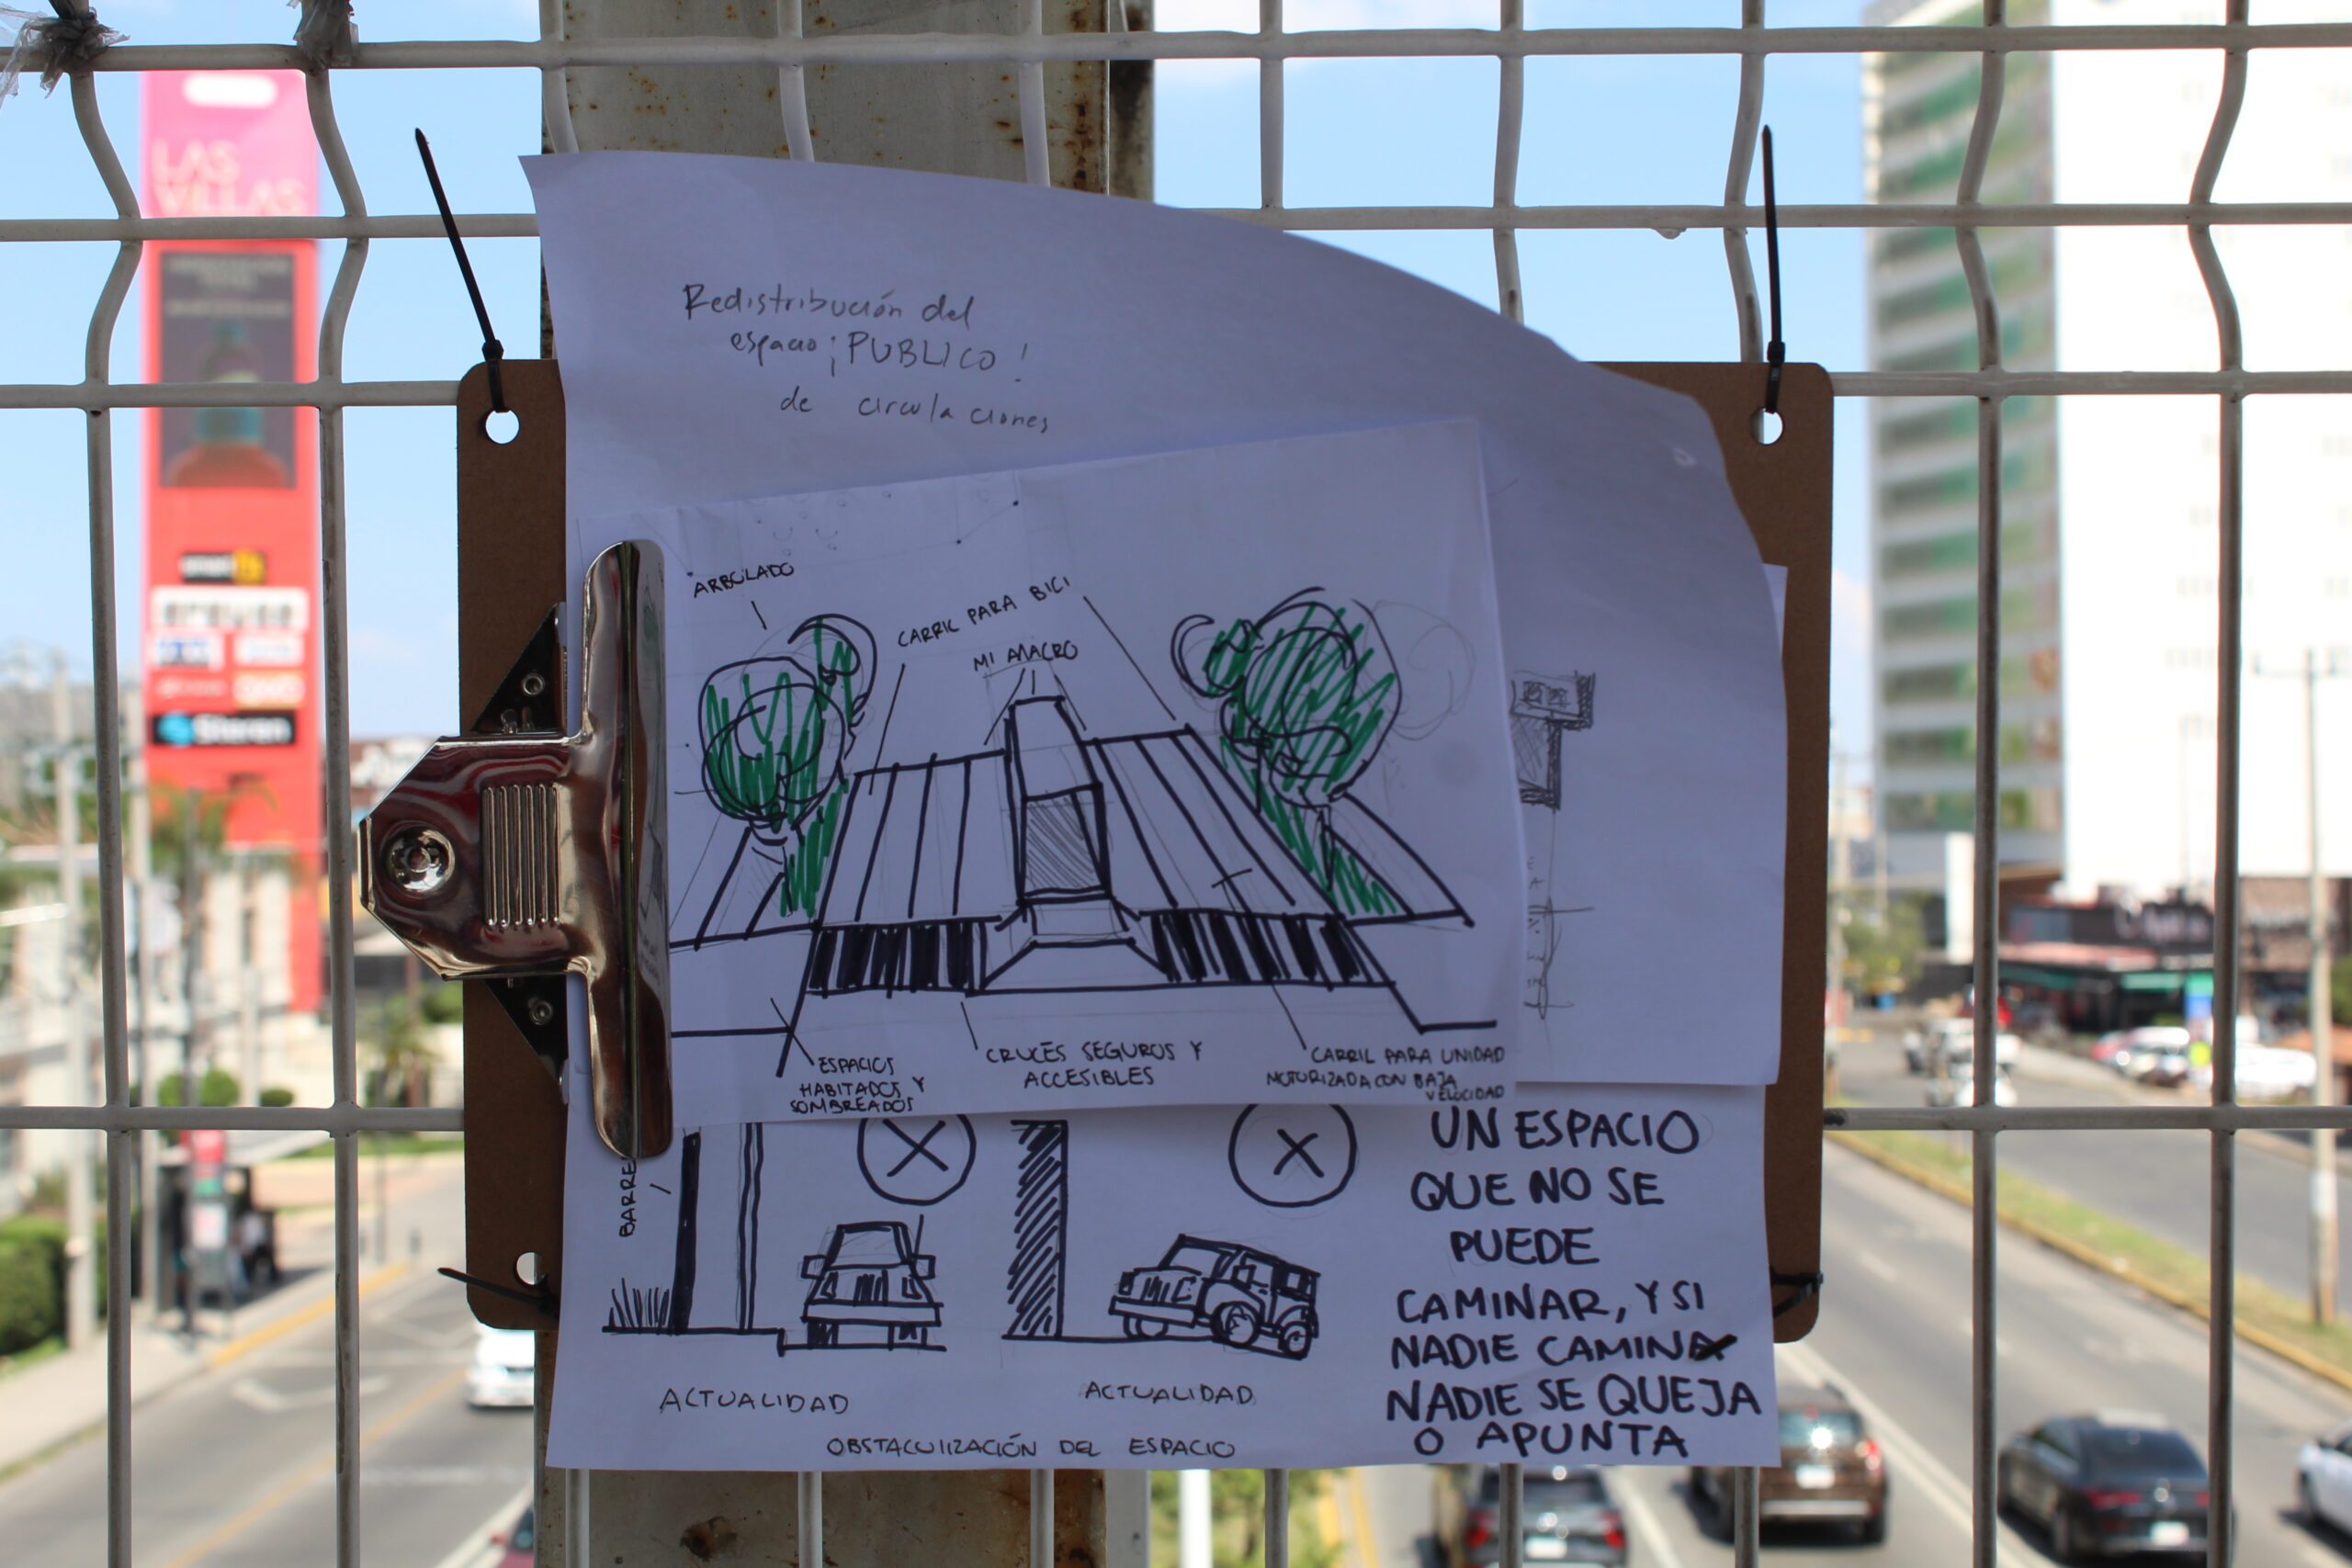 LAS
VILLAS
Steren
Redistribución del
espacio ¡PUBLICO!
de circulaciones
ARBOLADO
CARRIL PARA BICI
MI MACRO
ESPACIOS
HABITADOS Y
SOMBREADOS
CRUCES SEGUROS Y
ACCESIBLES
CARRIL PARA UNIDAD
MOTORIZADA CON BAJA
VELOCIDAD
BARRE
ACTUALIDAD
ACTUALIDAD
OBSTACULIZACIÓN DEL ESPACIO
UN ESPACIO
QUE NO SE
PUEDE
CAMINAR, Y SI
NADIE CAMINA
NADIE SE QUEJA
O APUNTA